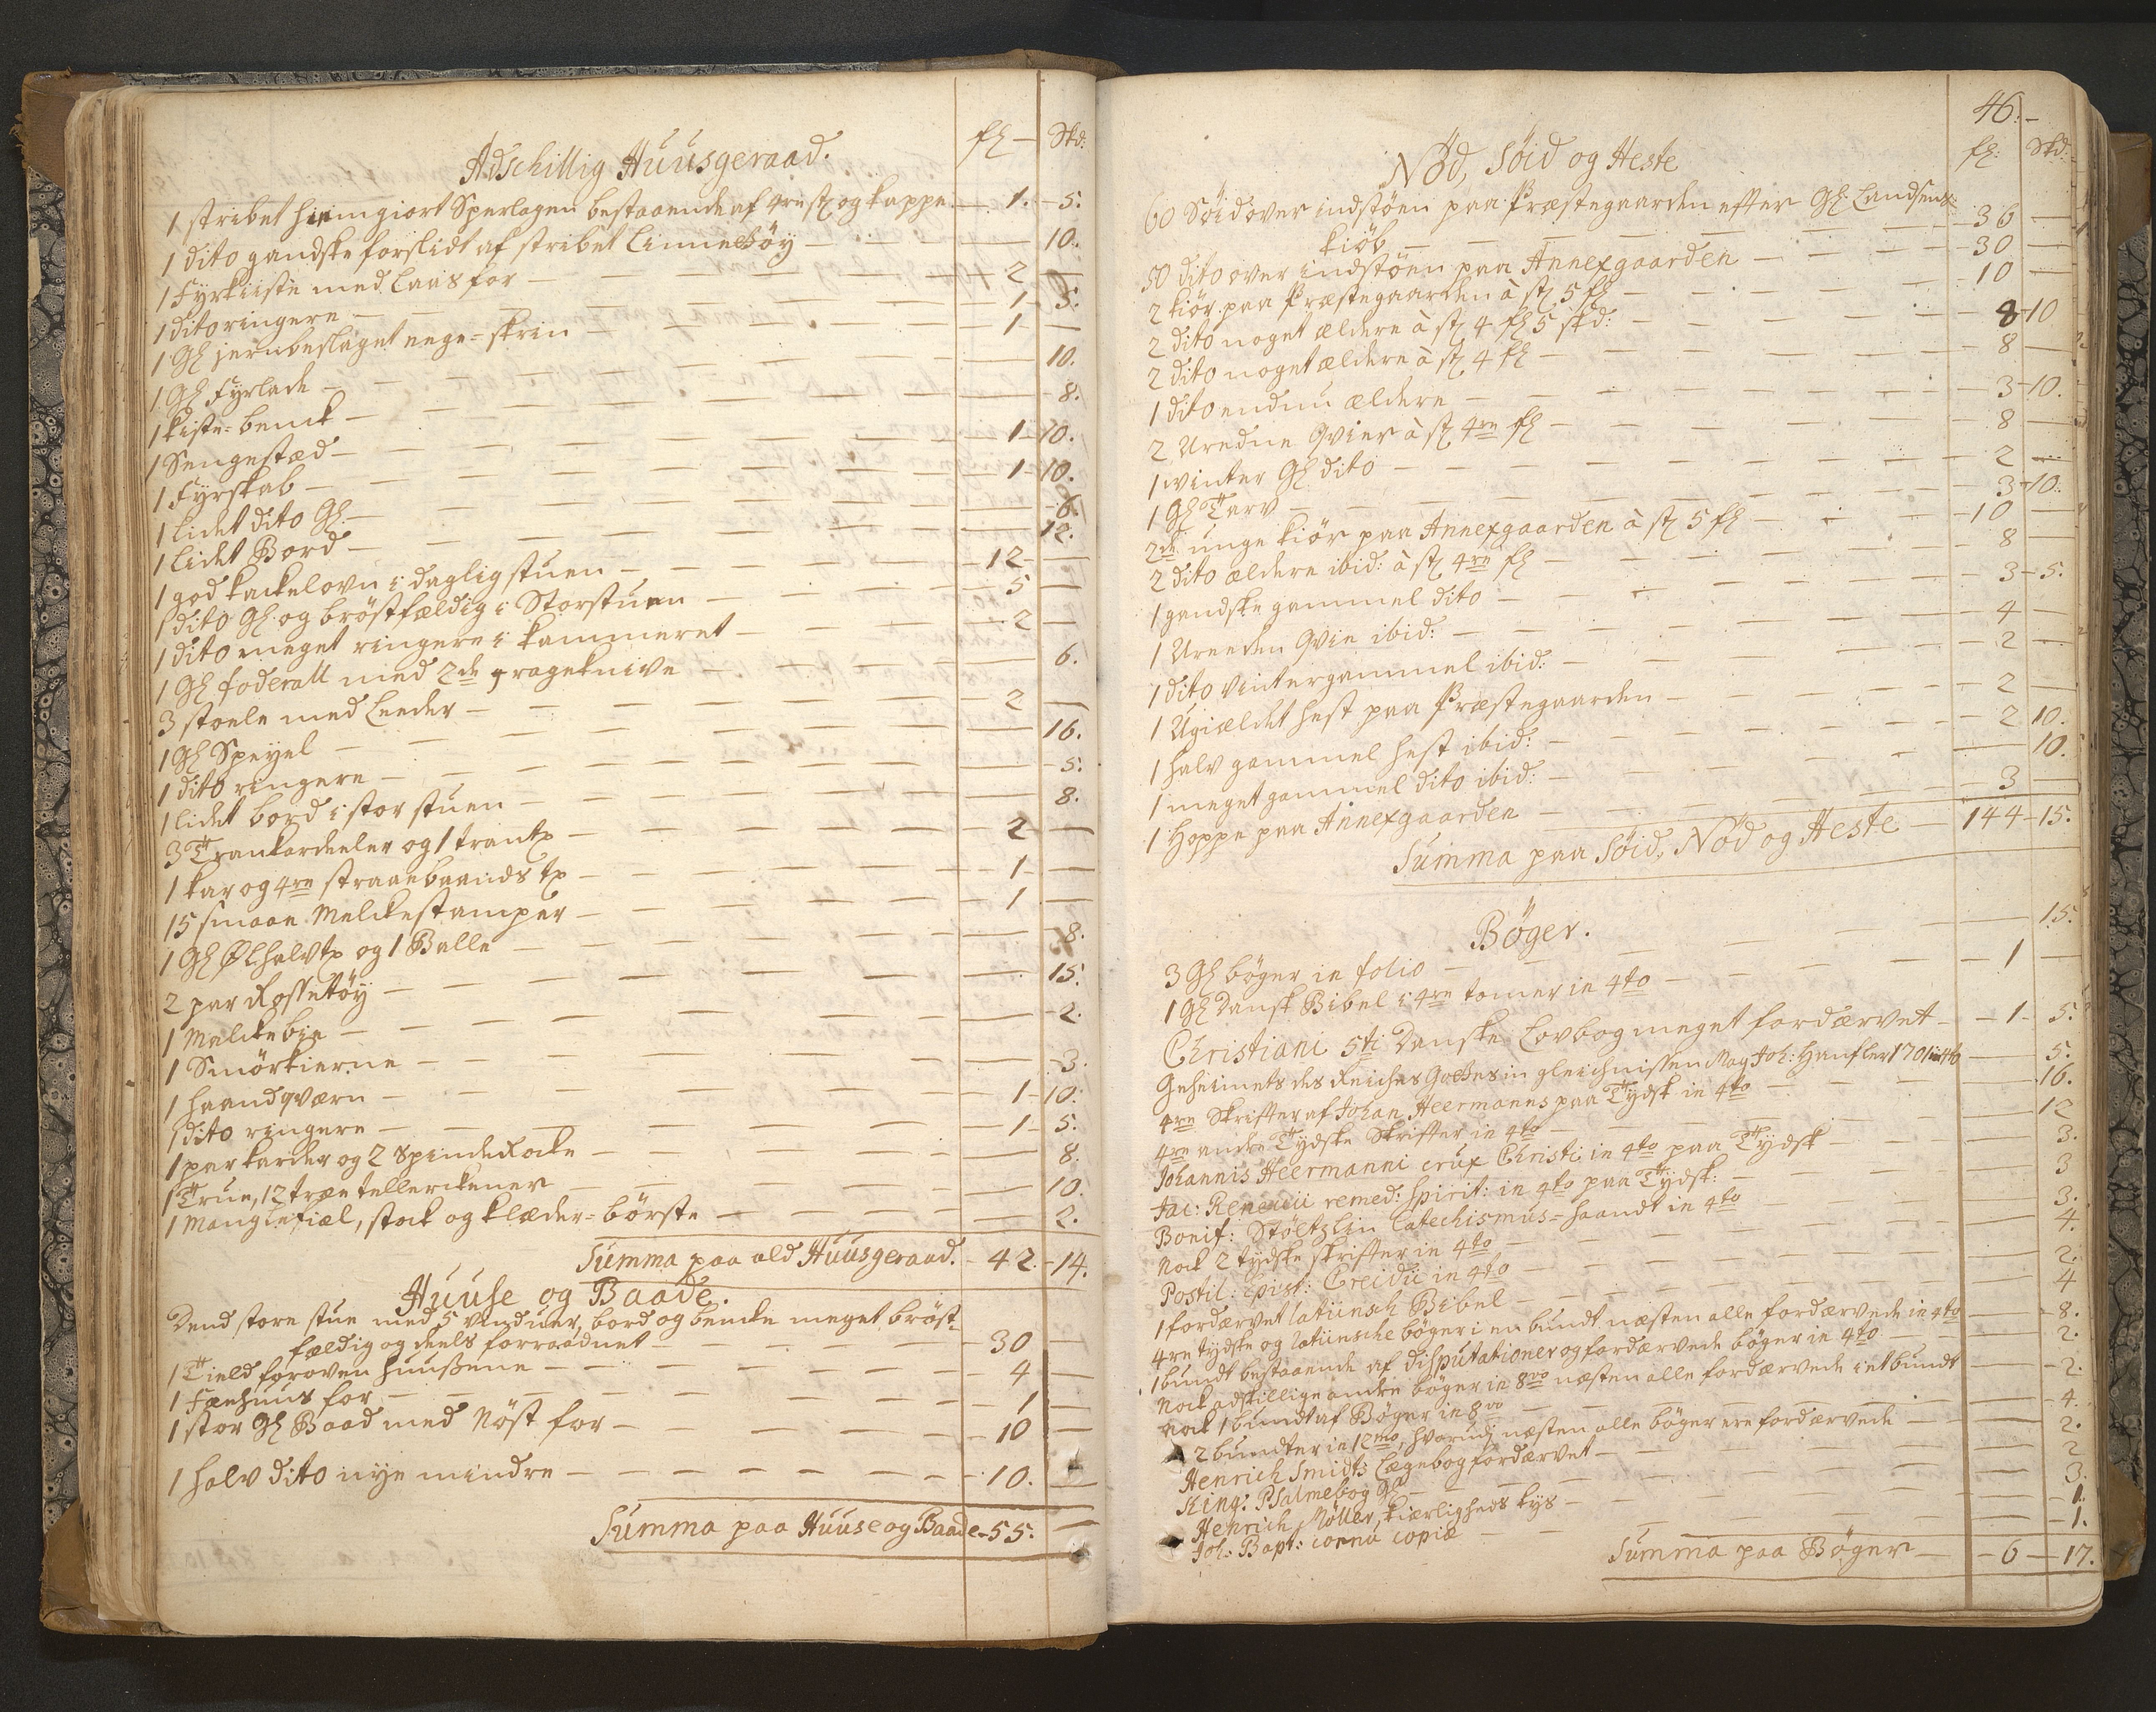 fl – Skd:
Adschillig Huusgeraad.
1 stribet hiemgiort Sperlagen bestaaende af 4re st og kappe. – 1. – 5.
1 dito gandske forslidt af stribet Linnetøy – 10.
1 Fyrkiiste med Laas for – 2 –
1 dito ringere – 1 – 5.
1 Gl jernbeslaget eege=skrin – 1 –
1 Gl Fyrlade – 10.
1 kiste=benck – 8.
1 Sengestæd – 1 – 10.
1 Fyrskab – 1 – 10.
1 lidet dito Gl. – 6.
1 lidet Bord – 12.
1 god kackelovn i dagligstuen – 12 –
1 dito Gl. og bröstfældig i Storstuen – 5 –
1 dito meget ringere i kammeret – 2 –
1 Gl foderall med 2de rageknive – 6.
3 stoele med Leeder – 2 –
1 Gl Speyel – 16.
1 dito ringere – 5.
1 lidet bord i stor stuen – 8.
3 Trankardeeler og 1 trantp – 2 –
1 kar og 4re straaebaands tp – 1 –
15 smaae Melckestamper – 1 –
1 Gl Øl halvtp og 1 Balle – 8.
2 par Rossetöy – 15.
1 Melckebie – 2.
1 Smörkierne – 3.
1 haandqværn – 1 – 10.
1 dito ringere – 1 – 5.
1 par karder og 2 SpindeRocke – 8.
1 True, 12 træe tellerckener – 10.
1 Manglefiæl, stock og klæder=börste – 2.
Summa paa ald Huusgeraad. – 42. – 14.
Huuse og Baade.
Dend store stue med 5 vinduer, bord og bencke meget bröst=
fældig og deels forraadnet – 30 –
1 Tield foroven huusene – 4 –
1 Fæehuus for – 1 –
1 stor Gl Baad med Nöst for – 10 –
1 halv dito nye mindre – 10. –
Summa paa Huuse og Baade – 55. –
46. –
fl: Skd:
Nöd, Söid og Heste
60 Söid over indstöen paa Præstegaarden efter Gl. Landsens
kiöb – 36 –
50 dito over indstöen paa Annexgaarden – 30 –
2 kiör paa Præstegaarden à st 5 fl – 10 –
2 dito noget ældere à st 4 fl 5 skd: – 8 – 10
2 dito noget ældere à st 4 fl – 8 –
1 dito endnu ældere – 3 – 10.
2 Uredne Qvier à st 4re fl – 8 –
1 winter Gl dito – 2 –
1 Gl Tarv – 3 – 10.
2de unge kiör paa Annexgaarden à st 5 fl – 10 –
2 dito ældere ibid: à st 4re fl – 8 –
1 gandske gammel dito – 3 – 5.
1 Ureeden Qvie ibid: – 4 –
1 dito vintergammel ibid: – 2 –
1 Ugieldet hest paa Præstegaarden – 2 –
1 halv gammel hest ibid: – 2 10.
1 meget gammel dito ibid: – 10.
1 Hoppe paa Annexgaarden – 3 –
Summa paa Söid, Nöd og Heste – 144 – 15.
Böger.
3 Gl böger in folio – 15.
1 Gl Dansk Bibel i 4re tomer in 4to – 1 –
Christiani 5ti Danske Lovbog meget fordærvet – 1 – 5.
Geheimets des Reiches Gottes in gleichnissen Mag Joh: Hanfler 1701 in 4to – 5.
4re Skrifter af Johan Heermanns paa Tydsk in 4to – 16.
4re andre Tydske Skrifter in 4to – 12
Johannis Heermanni crux Christi in 4to paa Tydsk – 3.
Jac: remed: spirit: in 4to paa Tydsk: – 3
Bonif: Stöltzlin Catechismus=haandt in 4to – 3.
Nock 2 tydske skrifter in 4to – 4.
Postil: Epist: Creidii in 4to – 2.
1 fordærvet latiinsch Bibel – 4
4re tydske og latiinsche böger i en bundt næsten alle fordærvede in 4to – 8.
1 bundt bestaaende af disputationer og fordærvede böger in 4to – 2.
Nock adskillige andre böger in 8vo næsten alle fordærvede i et bundt – 2.
Nock 1 bundt af Böger in 8vo – 4.
2 bundter in 12mo, hvorudi næsten alle böger ere fordærvede – 2.
Henrich Smidts Lægebog fordærvet – 2
King: Psalmebog Gl – 3.
Henrich Möller, kierligheds kys – 1.
Joh: Bapt: cornu copiæ – 1.
Summa paa Böger – 6 – 17.